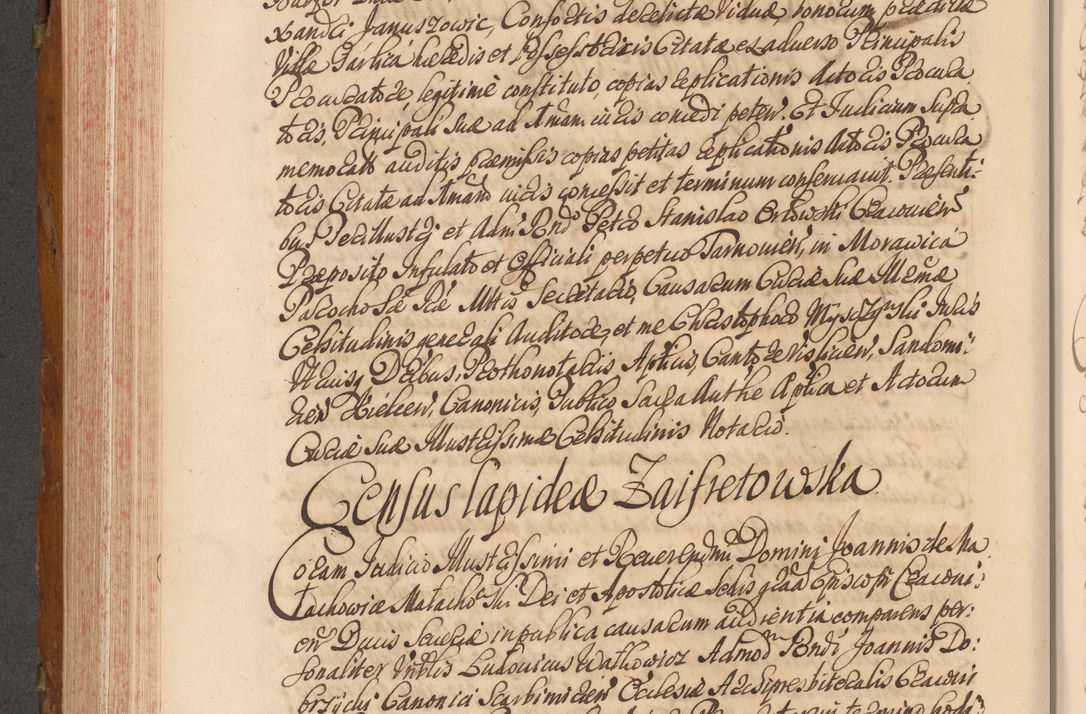 xandri Januszowic, Consortis derelictæ Viduæ bonorum prædictæ
Villæ Garlica hæredis et Possessatricis Citatæ ex adverso Principalis
Procuratore, legitimè constituto, copias Explicationis Actoris Procura
toris, Principali suæ ad Aman: iuris concedi peten. Et Judicium supra
memorato auditis præmissis copias petitas Explicationis Actoris Procura
toris Citatæ ad Aman iuris concessit et terminum conservavit. Præsenti:
bus Perillustri et Adm Rndo Petro Stanislao Orłowski Cracovien
Præposito Infulato et Officiali perpetuo Tarnovien, in Morawica
Parocho Sæ Ræ Mttis Secretario, Causarum Curiæ Suæ
Celsitudinis generali Auditore, et me Christophoro Juris
Utriusq Protonotariis Aplicis, Cantore Vislicien, Sandomi:
rien Kielcen, Canonicis, Publico Sacra Authe Aplica et Actorum
Curiæ suæ Illustrissimæ Celsitudinis Notario.
Census lapideæ Zaifretowska
Coram Judicio Illustrissimi et Reverendmi Domini Joannis de Ma
łachowice Małachowski Dei et Apostolicæ Sedis graa Episcopi Cracovi:
en Ducis Severiæ in publica causarum audientia comparens per:
sonaliter Ludovicus Walkowicz Admod Rndi Joannis Do:
brzycki Canonici Scarbimirien Ecclesiæ Archipresbiteralis Cracovi